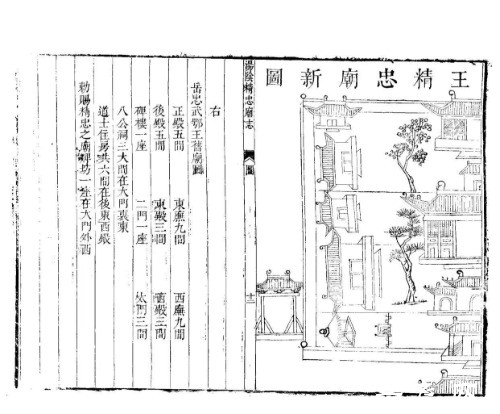 王精忠廟新圖
湯陰精忠廟志
圖
十二
右
岳忠武鄂王舊廟圖
正殿五間 東廡九間 西廡九間
後殿五間 東殿三間 西殿三間
碑樓一座 二門一座 大門三間
八公祠三大間在大門裏東
道士住房共六間在後東西
勑賜精忠之廟牌坊一座在大門外西